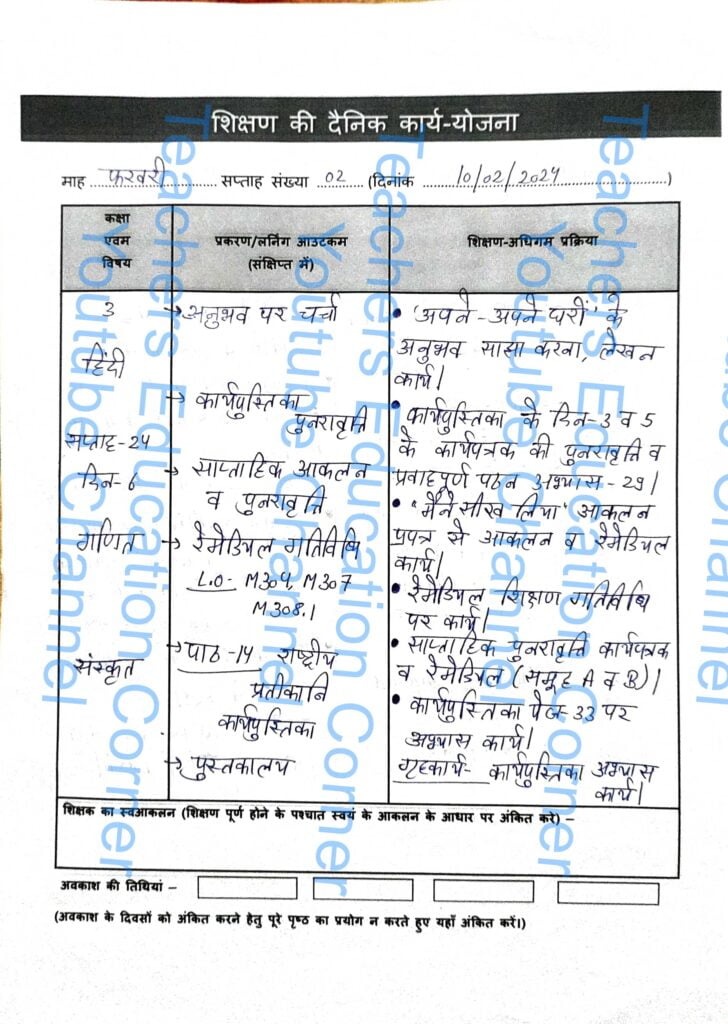 शिक्षण की दैनिक कार्य-योजना
माह फरवरी सप्ताह संख्या 02 (दिनांक 10/02/2024)
कक्षा
एवम
विषय
प्रकरण/लर्निंग आउटकम
(संक्षिप्त में)
शिक्षण-अधिगम प्रक्रिया
3
हिंदी
सप्ताह-24
दिन-6
गणित
संस्कृत
→ अनुभव पर चर्चा
→ कार्यपुस्तिका
पुनरावृत्ति
→ साप्ताहिक आकलन
व पुनरावृत्ति
→ रेमेडियल गतिविधि
L.O- M304, M307
M308.1
→ पाठ-14 राष्ट्रीय
प्रतीकानि
कार्यपुस्तिका
→ पुस्तकालय
• 'अपने-अपने घरों' के
अनुभव साझा करना, लेखन
कार्य।
• कार्यपुस्तिका के दिन-3 व 5
के कार्यपत्रक की पुनरावृत्ति व
प्रवाहपूर्ण पठन अभ्यास-29।
• 'मैंने सीख लिया' आकलन
प्रपत्र से आकलन व रेमेडियल
कार्य।
• रेमेडियल शिक्षण गतिविधि
पर कार्य।
• साप्ताहिक पुनरावृत्ति कार्यपत्रक
व रेमेडियल (समूह A व B)।
• कार्यपुस्तिका पेज-33 पर
अभ्यास कार्य।
गृहकार्य- कार्यपुस्तिका अभ्यास
कार्य।
शिक्षक का स्वआकलन (शिक्षण पूर्ण होने के पश्चात स्वयं के आकलन के आधार पर अंकित करे) –
अवकाश की तिथियां –
(अवकाश के दिवसों को अंकित करने हेतु पूरे पृष्ठ का प्रयोग न करते हुए यहाँ अंकित करें।)
Teachers Education Corner
Youtube Channel
Teachers Education Corner
Youtube Channel
Teachers Education Corner
Youtube Channel